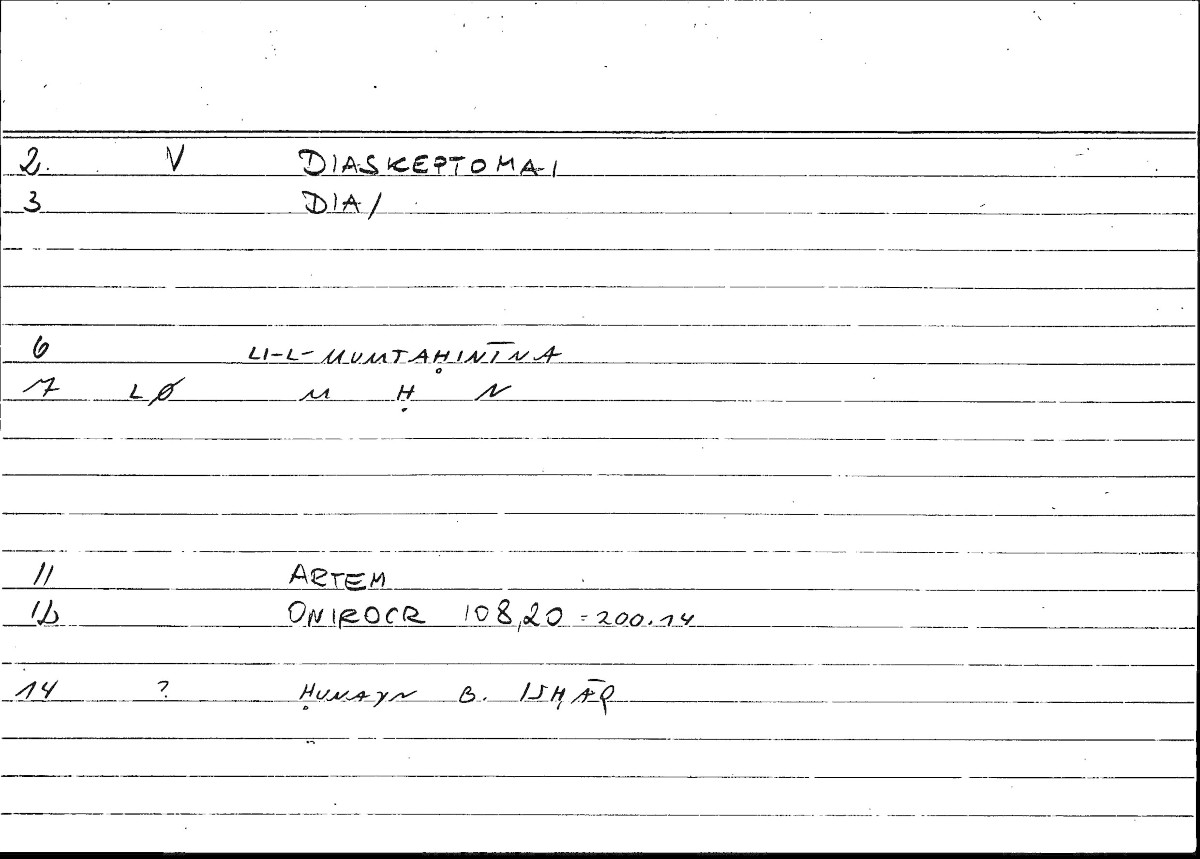 2. V DIASKEPTOMAI
3 DIA/
6 LI-L-MUMTAḤINĪNA
7 LØ M Ḥ N
11 ARTEM
12 ONIROCR 108,20 = 200.14
14 ? ḤUNAYN B. ISḤĀQ